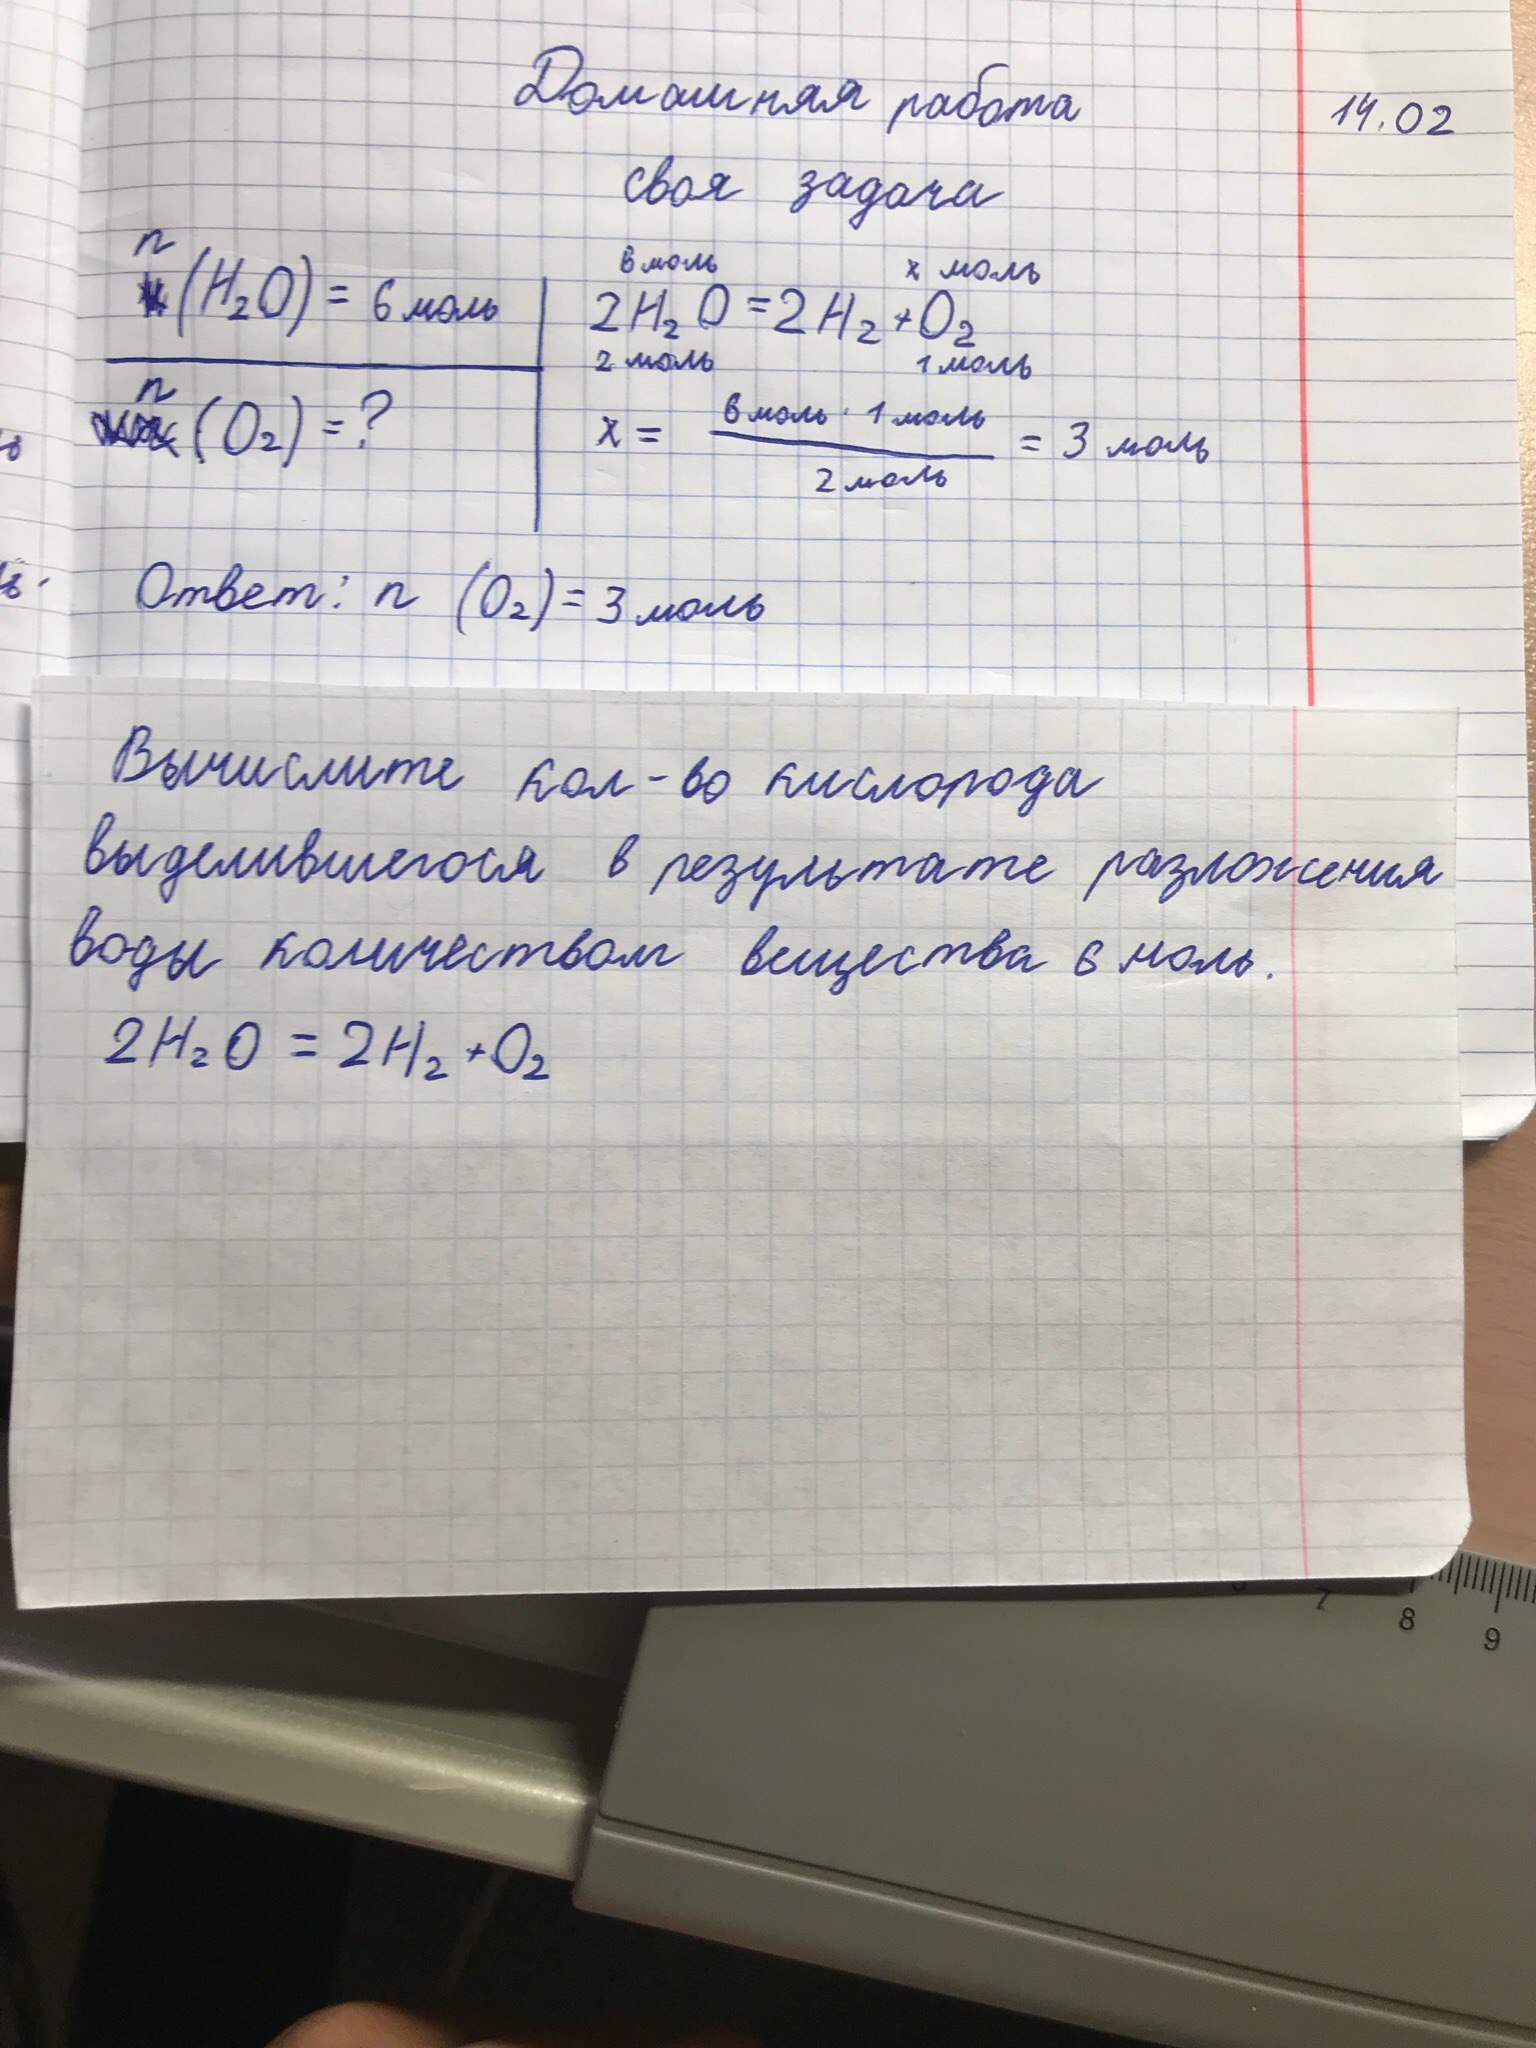 Домашняя работа
14.02
своя задача
n (H₂O) = 6 моль
n (O₂) = ?
6 моль x моль
2H₂O = 2H₂ + O₂
2 моль 1 моль
x = 6 моль · 1 моль / 2 моль = 3 моль
Ответ: n (O₂) = 3 моль
Вычислите кол-во кислорода
выделившегося в результате разложения
воды количеством вещества 6 моль.
2H₂O = 2H₂ + O₂
7 8 9